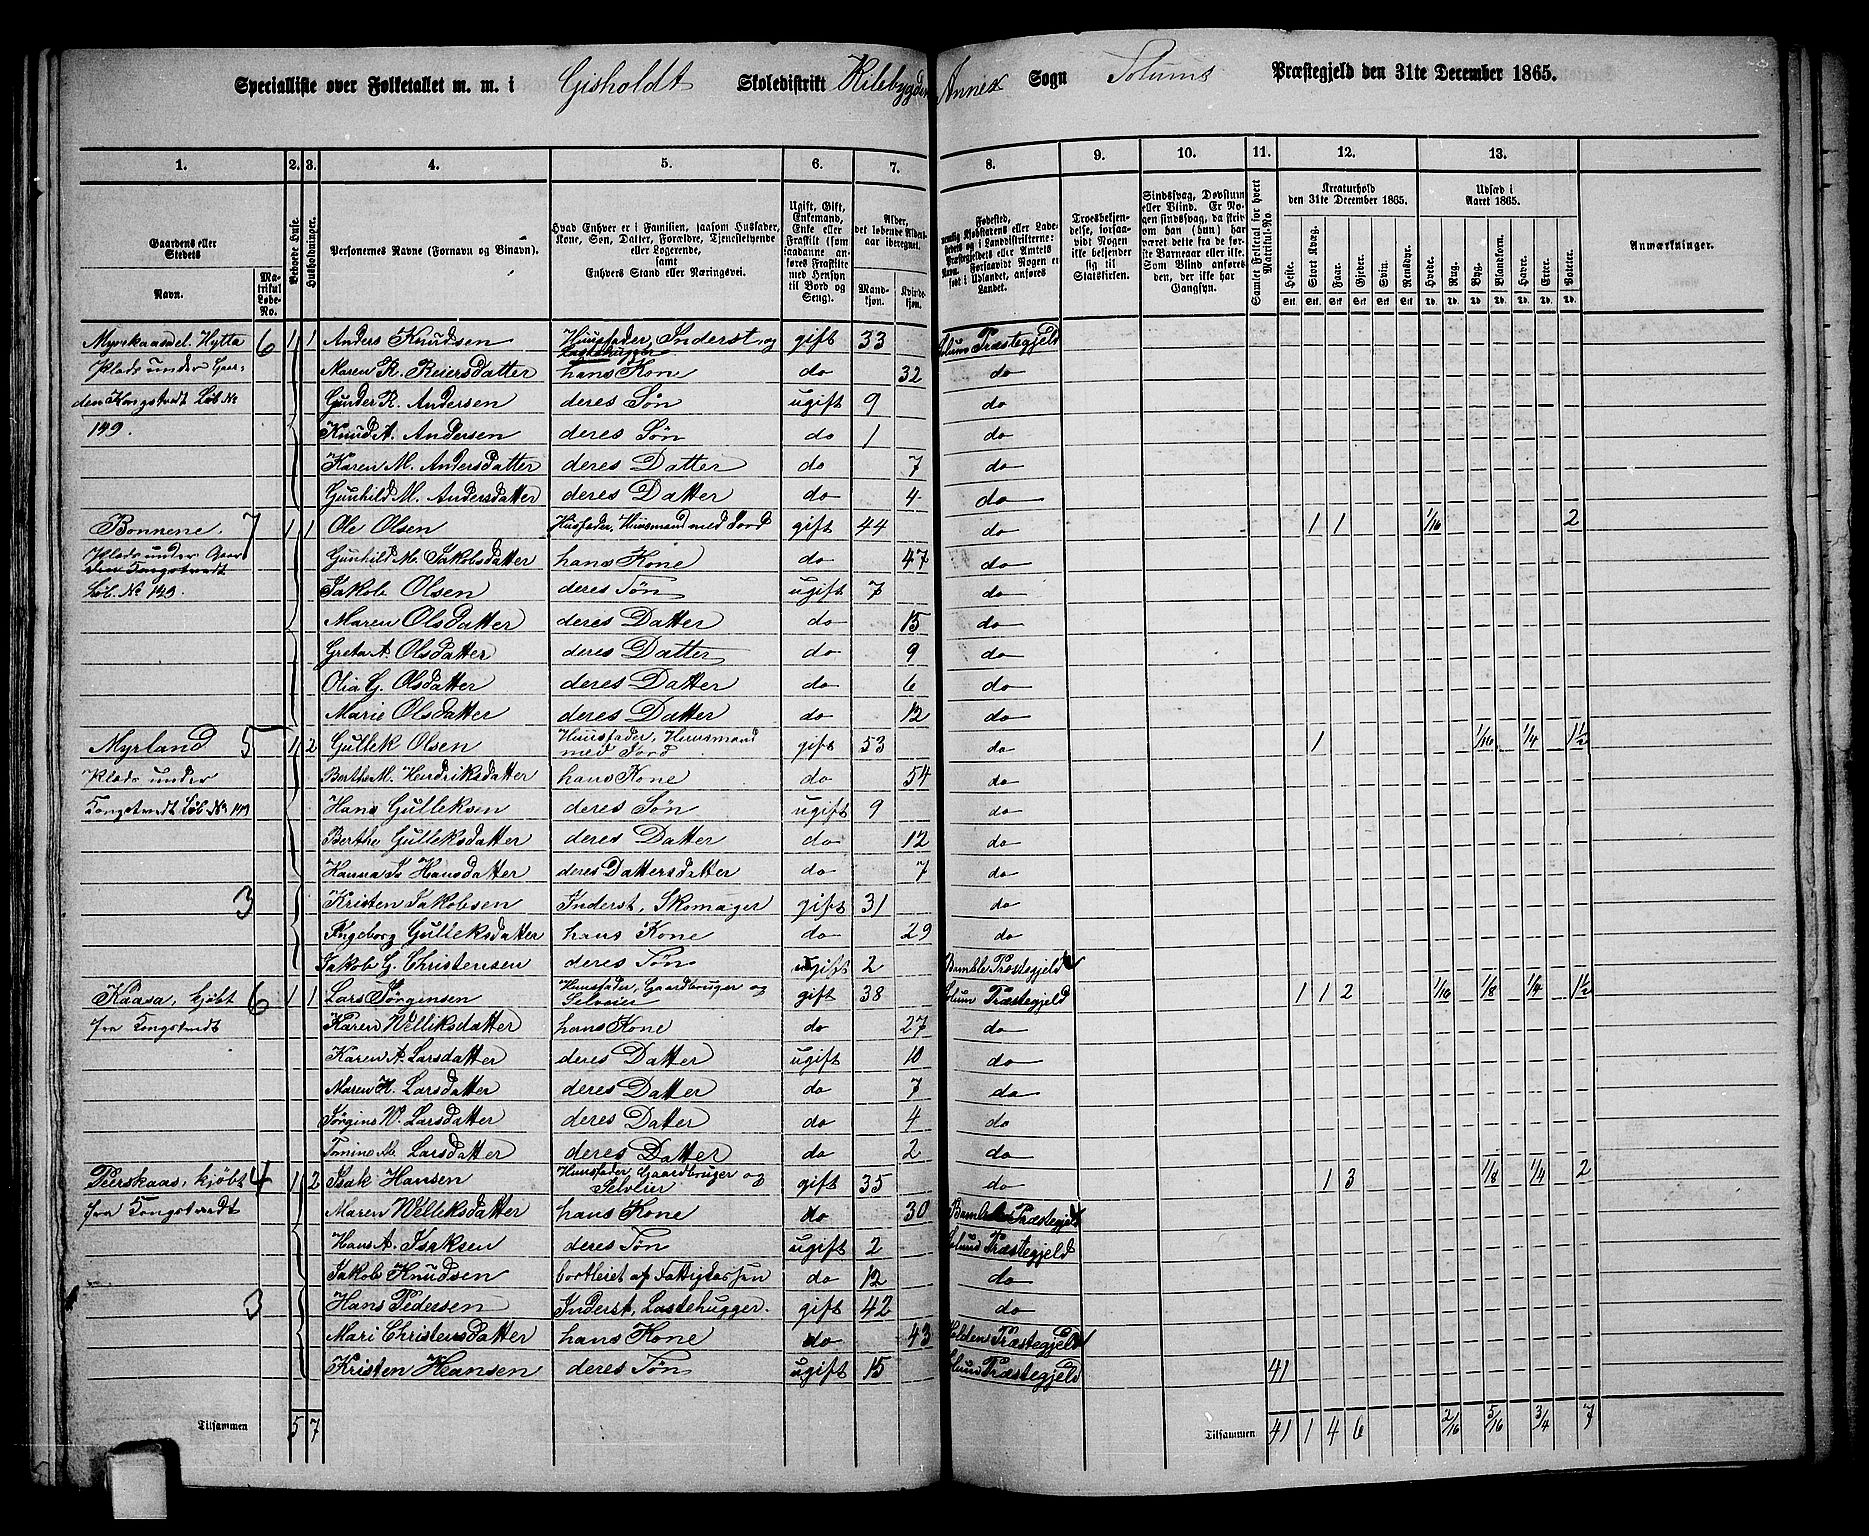 Specialliste over Folketallet m. m. i Gisholdt Skoledistrikt Kilebygdens Annex Sogn Solums Præstegjeld den 31te December 1865.
1. 2. 3. 4. 5. 6. 7. 8. 9. 10. 11. 12. 13.
Gaardens eller Stedets Navn. Matrikul Løbe-No. Beboede Huse. Husholdninger. Personernes Navne (Fornavn og Binavn). Hvad Enhver er i Familien, saasom Husfader, Kone, Søn, Datter, Forældre, Tjenestetyende eller Logerende, samt Enhvers Stand eller Næringsvei. Ugift, Gift, Enkemand, Enke eller Fraskilt (som saadanne anføres Fraskilte med Hensyn til Bord og Seng). Alder, det løbende Alders-aar iberegnet. Mandkjøn. Kvindekjøn. Fødested, Troesbekjendelse, forsaavidt Nogen ikke bekjender sig til Statskirken. Sindssvag, Døvstum eller Blind. Er Nogen sindssvag, da skrives om han (hun) har været dette fra de første Barneaar eller ikke. Som Blind anføres den, der ikke har Gangsyn. Samlet Folketal for hvert Matrikul-No. Kreaturhold den 31te December 1865. Udsæd i Aaret 1865. Anmærkninger.
Heste. Stort Kvæg. Faar. Gjeder. Svin. Rensdyr. Hvede. Rug. Byg. Blandkorn. Havre. Erter. Poteter.
6 1 1 Anders Knudsen Huusfader, Inderst og Lastehugger gift 33 Solum Præstegjeld
Plads under Gaar- Maren K. Reiersdatter hans Kone do 32 do
den Kongstvedt Løb. No Gunder R. Andersen deres Søn ugift 9 do
149. Knud A. Andersen deres Søn do 1 do
Karen M. Andersdatter deres Datter do 7 do
Gunhild M. Andersdatter deres Datter do 4 do
Bonnene. 7 1 1 Ole Olsen Husfader, Huusmand med Jord gift 44 do 1 1 1/16 2
Plads under Gaar Gunhild M. Jakobsdatter hans Kone do 47 do
Løb. No 149. Jakob Olsen deres Søn ugift 7 do
Maren Olsdatter deres Datter do 15 do
Greta A. Olsdatter deres Datter do 9 do
Olia G. Olsdatter deres Datter do 6 do
Marie Olsdatter deres Datter do 12 do
Myrland 5 1 2 Gullek Olsen Huusfader, Huusmand med Jord gift 53 do 1 1/16 1/4 1 1/2
Plads under Berthe M. Hendriksdatter hans Kone do 54 do
Kongstvedt Løb. No 149 Hans Gulleksen deres Søn ugift 9 do
Berthe Gulleksdatter deres Datter do 12 do
Hanna Hansdatter deres Dattersdatter do 7 do
3 Kristen Jakobsen Inderst, Skomager gift 31 do
Ingeborg Gulleksdatter hans Kone do 29 do
Jakob G. Christensen deres Søn ugift 2 Bamble Præstegjeld
Kaasa, kjøbt 6 1 1 Lars Jørgensen Huusfader, Gaardbruger og Selveier gift 38 Solum Præstegjeld 1 1 2 1/16 1/8 1/4 1 1/2
fra Kongstvedt Karen Welliksdatter hans Kone do 27 do
Karen A. Larsdatter deres Datter ugift 10 do
Maren H. Larsdatter deres Datter do 7 do
Jørgine W. Larsdatter deres Datter do 4 do
Tomine M. Larsdatter deres Datter do 2 do
Peerskaas, kjøbt 4 1 2 Isak Hansen Huusfader, Gaardbruger og Selveier gift 35 do 1 3 1/8 1/4 2
fra Kongstvedt Maren Welliksdatter hans Kone do 30 Bamble Præstegjeld
Hans A. Isaksen deres Søn ugift 2 Solum Præstegjeld
Jakob Knudsen bortleiet af Fattigkassen do 12 do
3 Hans Pedersen Inderst, Lastehugger. gift 42 do
Mari Christensdatter hans Kone do 43 Holden Præstegjeld
Kristen Hansen deres Søn ugift 15 Solum Præstegjeld 41
Tilsammen 5 7 Tilsammen 41 1 4 6 2/16 5/16 3/4 7